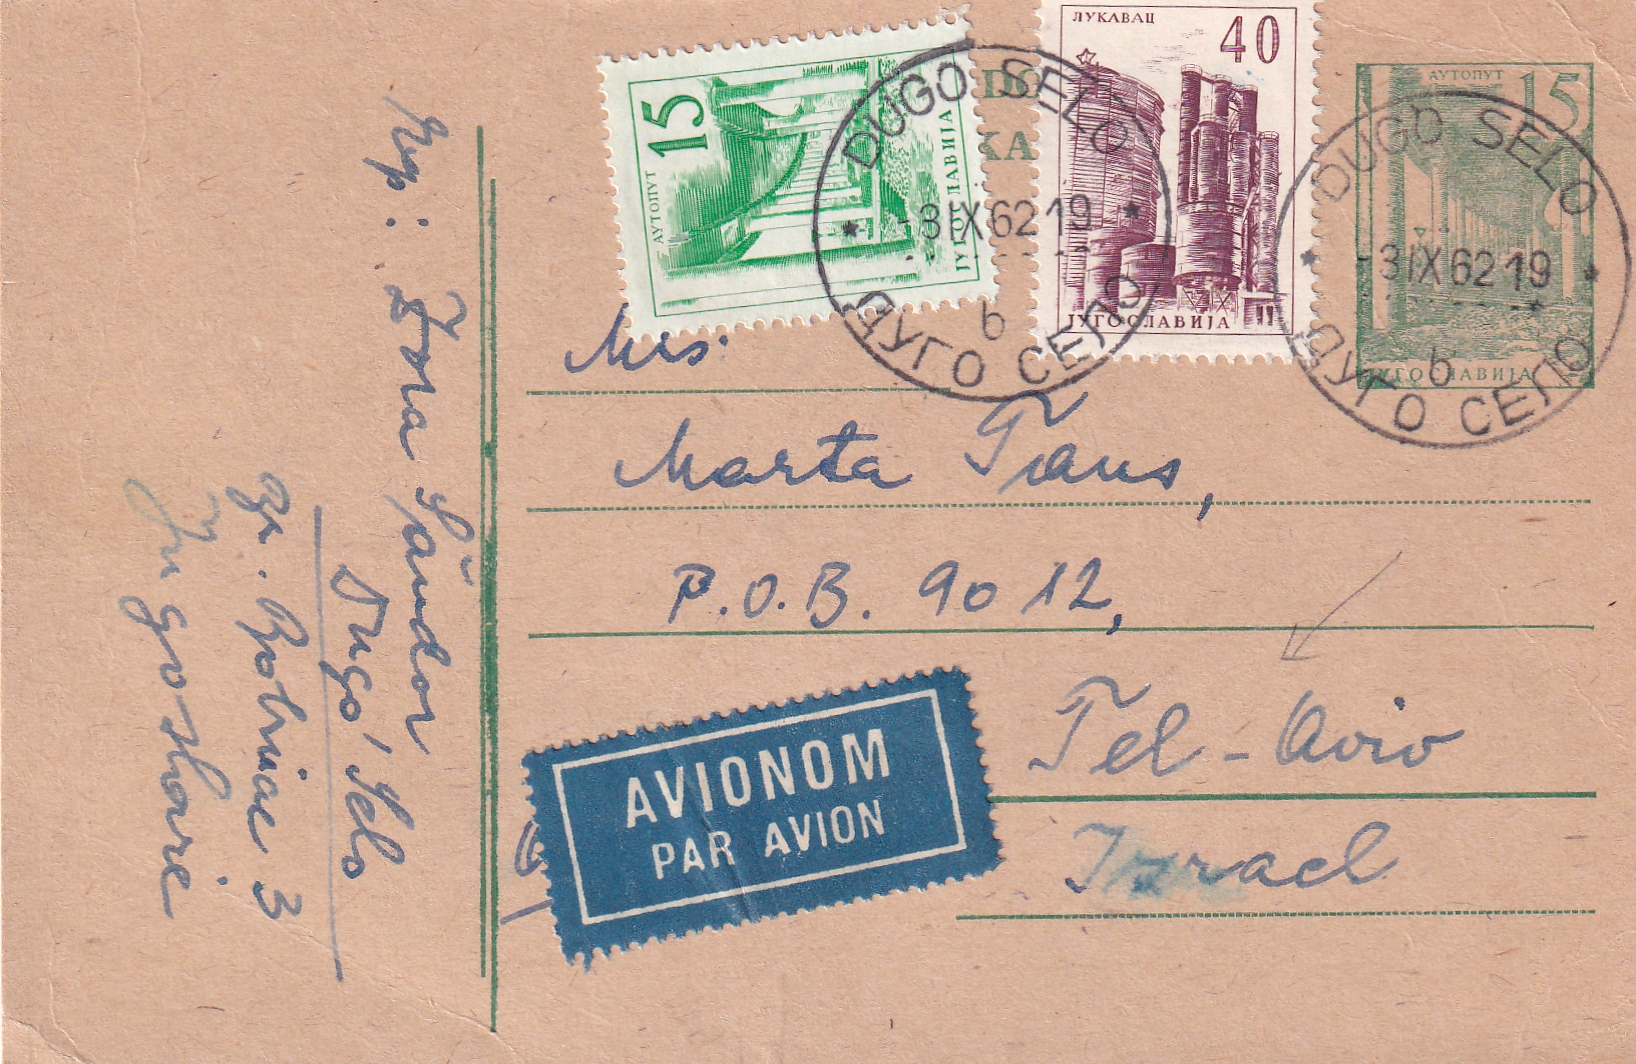 15
АУТОПУТ
ЈУГОСЛАВИЈА
КА
ЛУКАВАЦ
40
ЈУГОСЛАВИЈА
АУТОПУТ 15
ЈУГОСЛАВИЈА
DUGO SELO
-3 IX 62 19
b
ДУГО СЕЛО
DUGO SELO
-3 IX 62 19
b
ДУГО СЕЛО
Mrs.
Marta Traus,
P.O.B. 9012,
Tel-Aviv
Israel
AVIONOM
PAR AVION
Zora Šandor
Dugo Selo
3